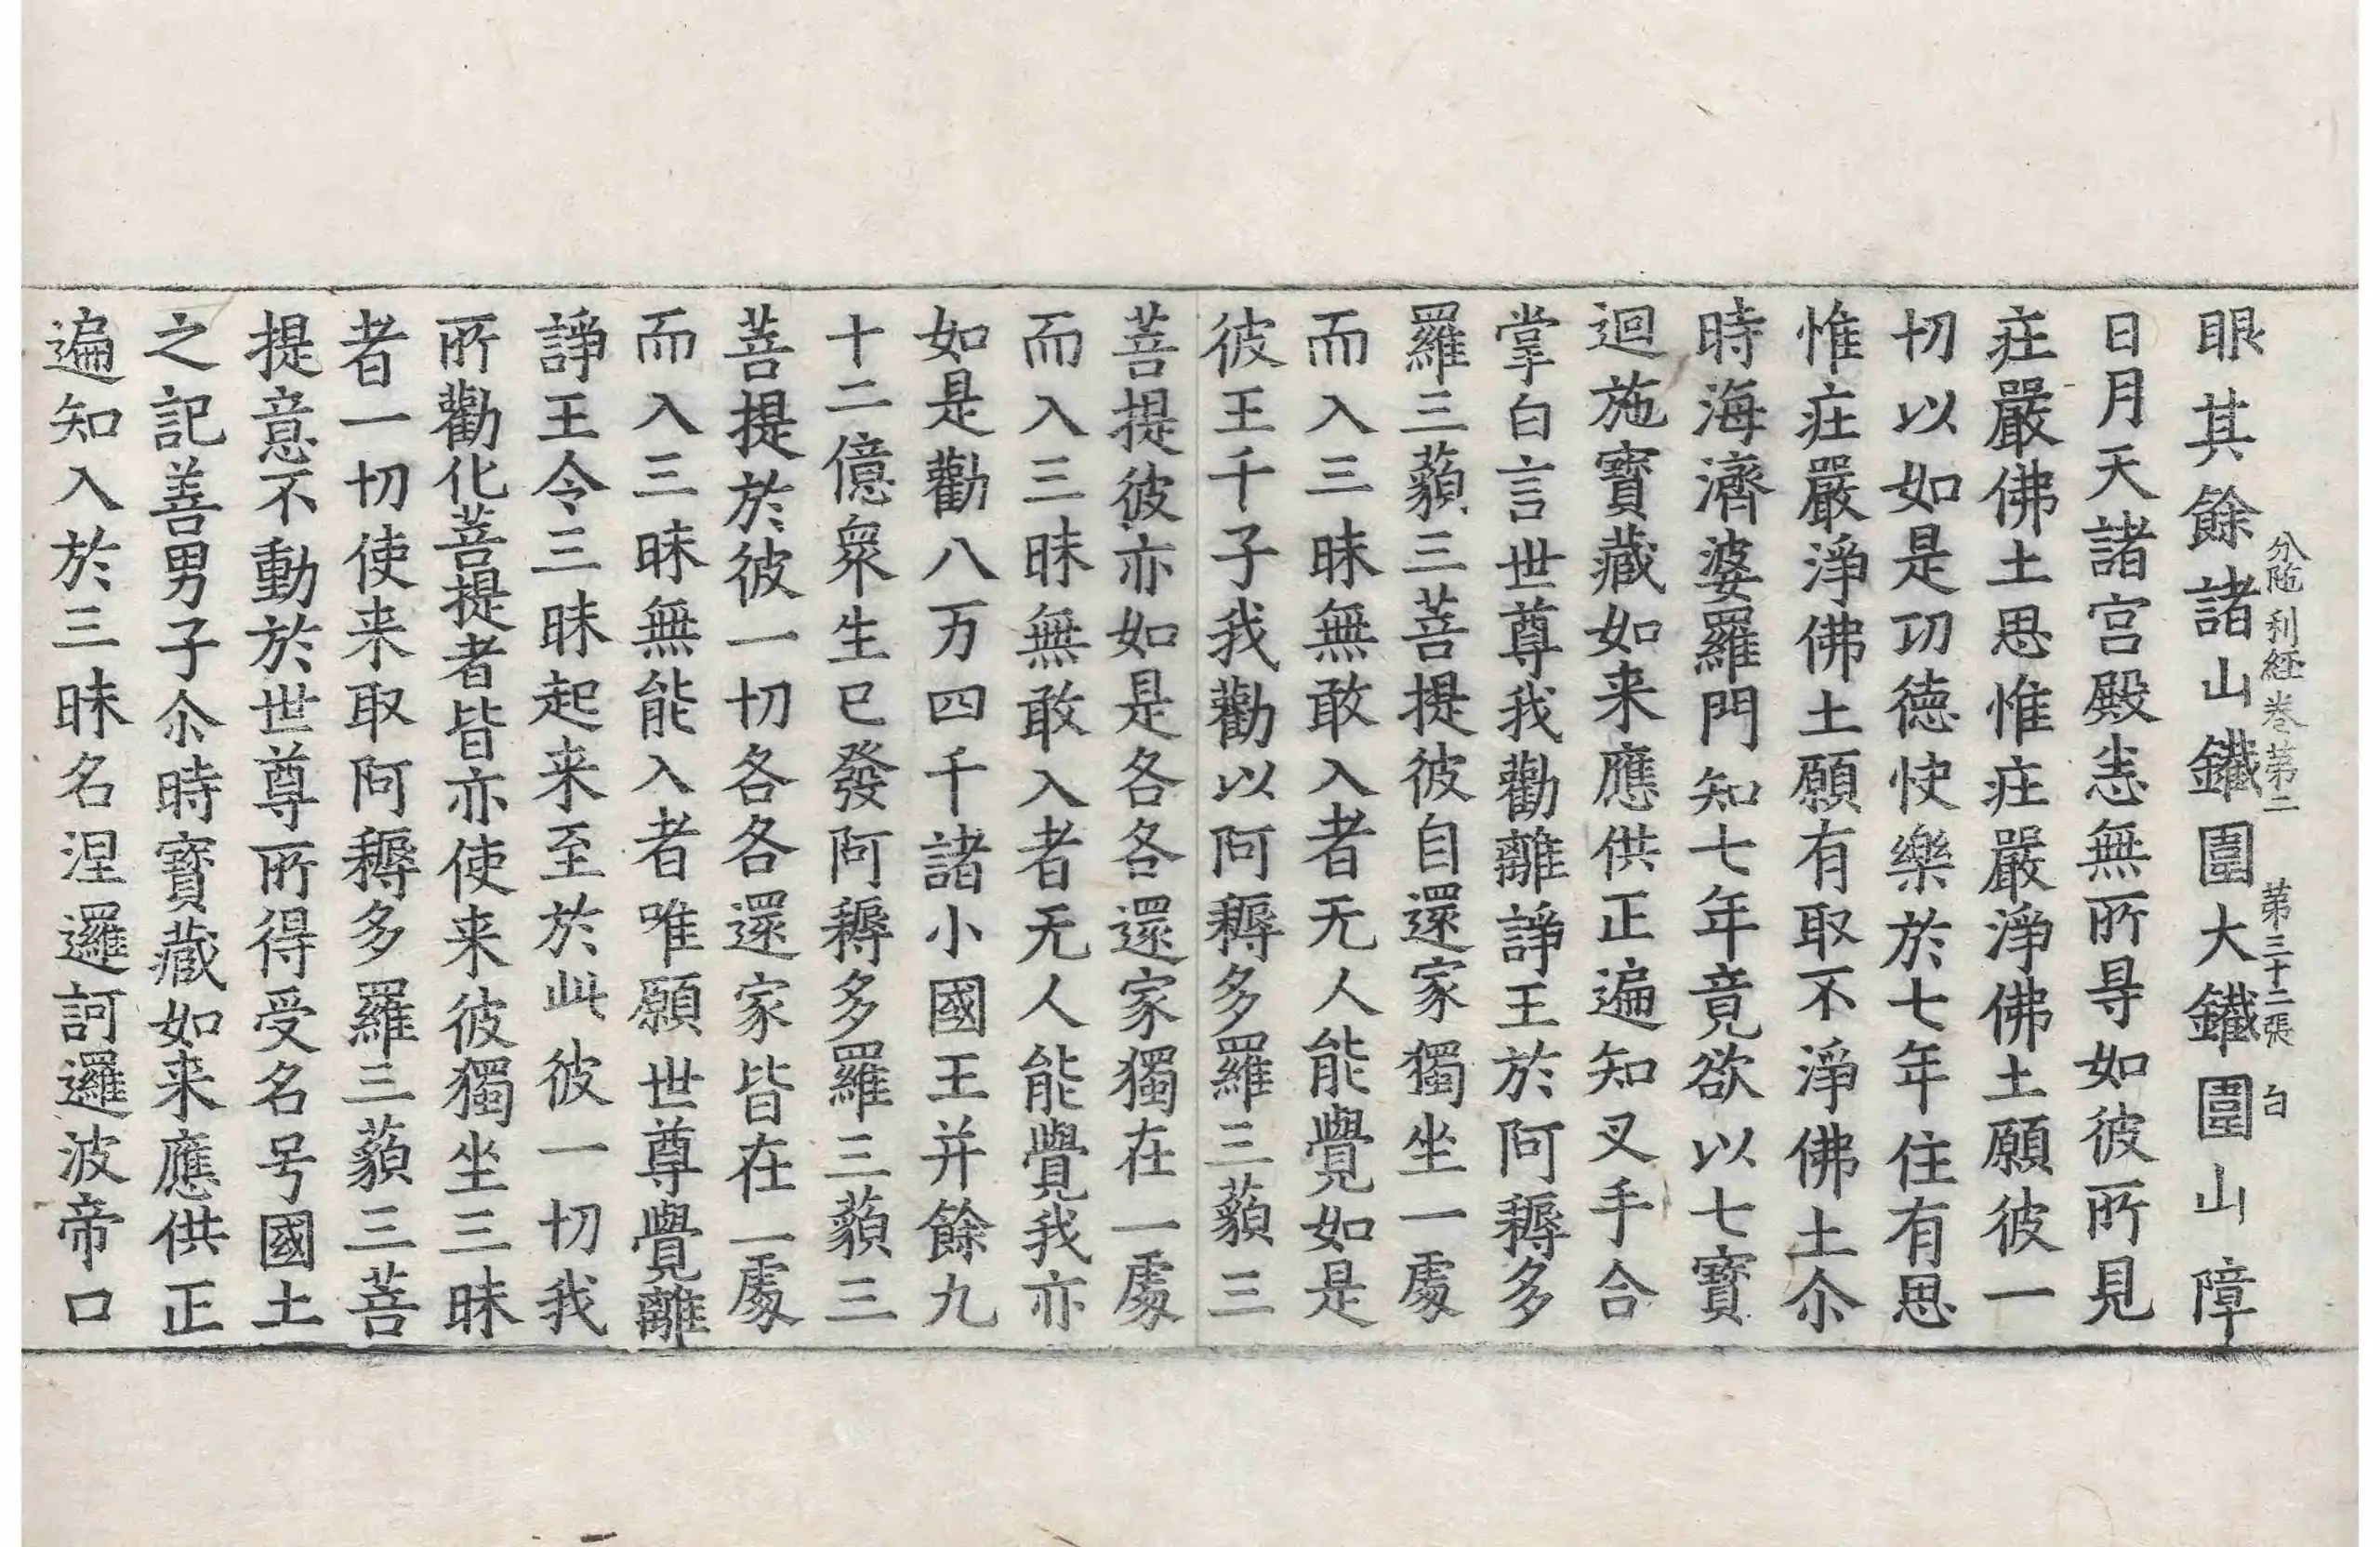 眼其餘諸山鐵圍大鐵圍山障
分陁利経卷第二 第三十二張 白
日月天諸宮殿恚無所㝵如彼所見
庄嚴佛土思惟庄嚴淨佛土願彼一
切以如是㓛德快樂於七年住有思
惟庄嚴淨佛土願有取不淨佛土尒
時海濟婆羅門知七年竟欲以七寶
迴施寶藏如来應供正遍知叉手合
掌白言世尊我勸離諍王於阿耨多
羅三藐三菩提彼自還家獨坐一處
而入三昧無敢入者无人能覺如是
彼王千子我勸以阿耨多羅三藐三
菩提彼亦如是各各還家獨在一處
而入三昧無敢入者无人能覺我亦
如是勸八万四千諸小國王并餘九
十二億衆生已發阿耨多羅三藐三
菩提於彼一切各各還家皆在一處
而入三昧無能入者唯願世尊覺離
諍王令三昧起来至於此彼一切我
所勸化菩提者皆亦使来彼獨坐三昧
者一切使来取阿耨多羅三藐三菩
提意不動於世尊所得受名号國土
之記善男子尒時寶藏如来應供正
遍知入於三昧名涅邏訶邏波帝口